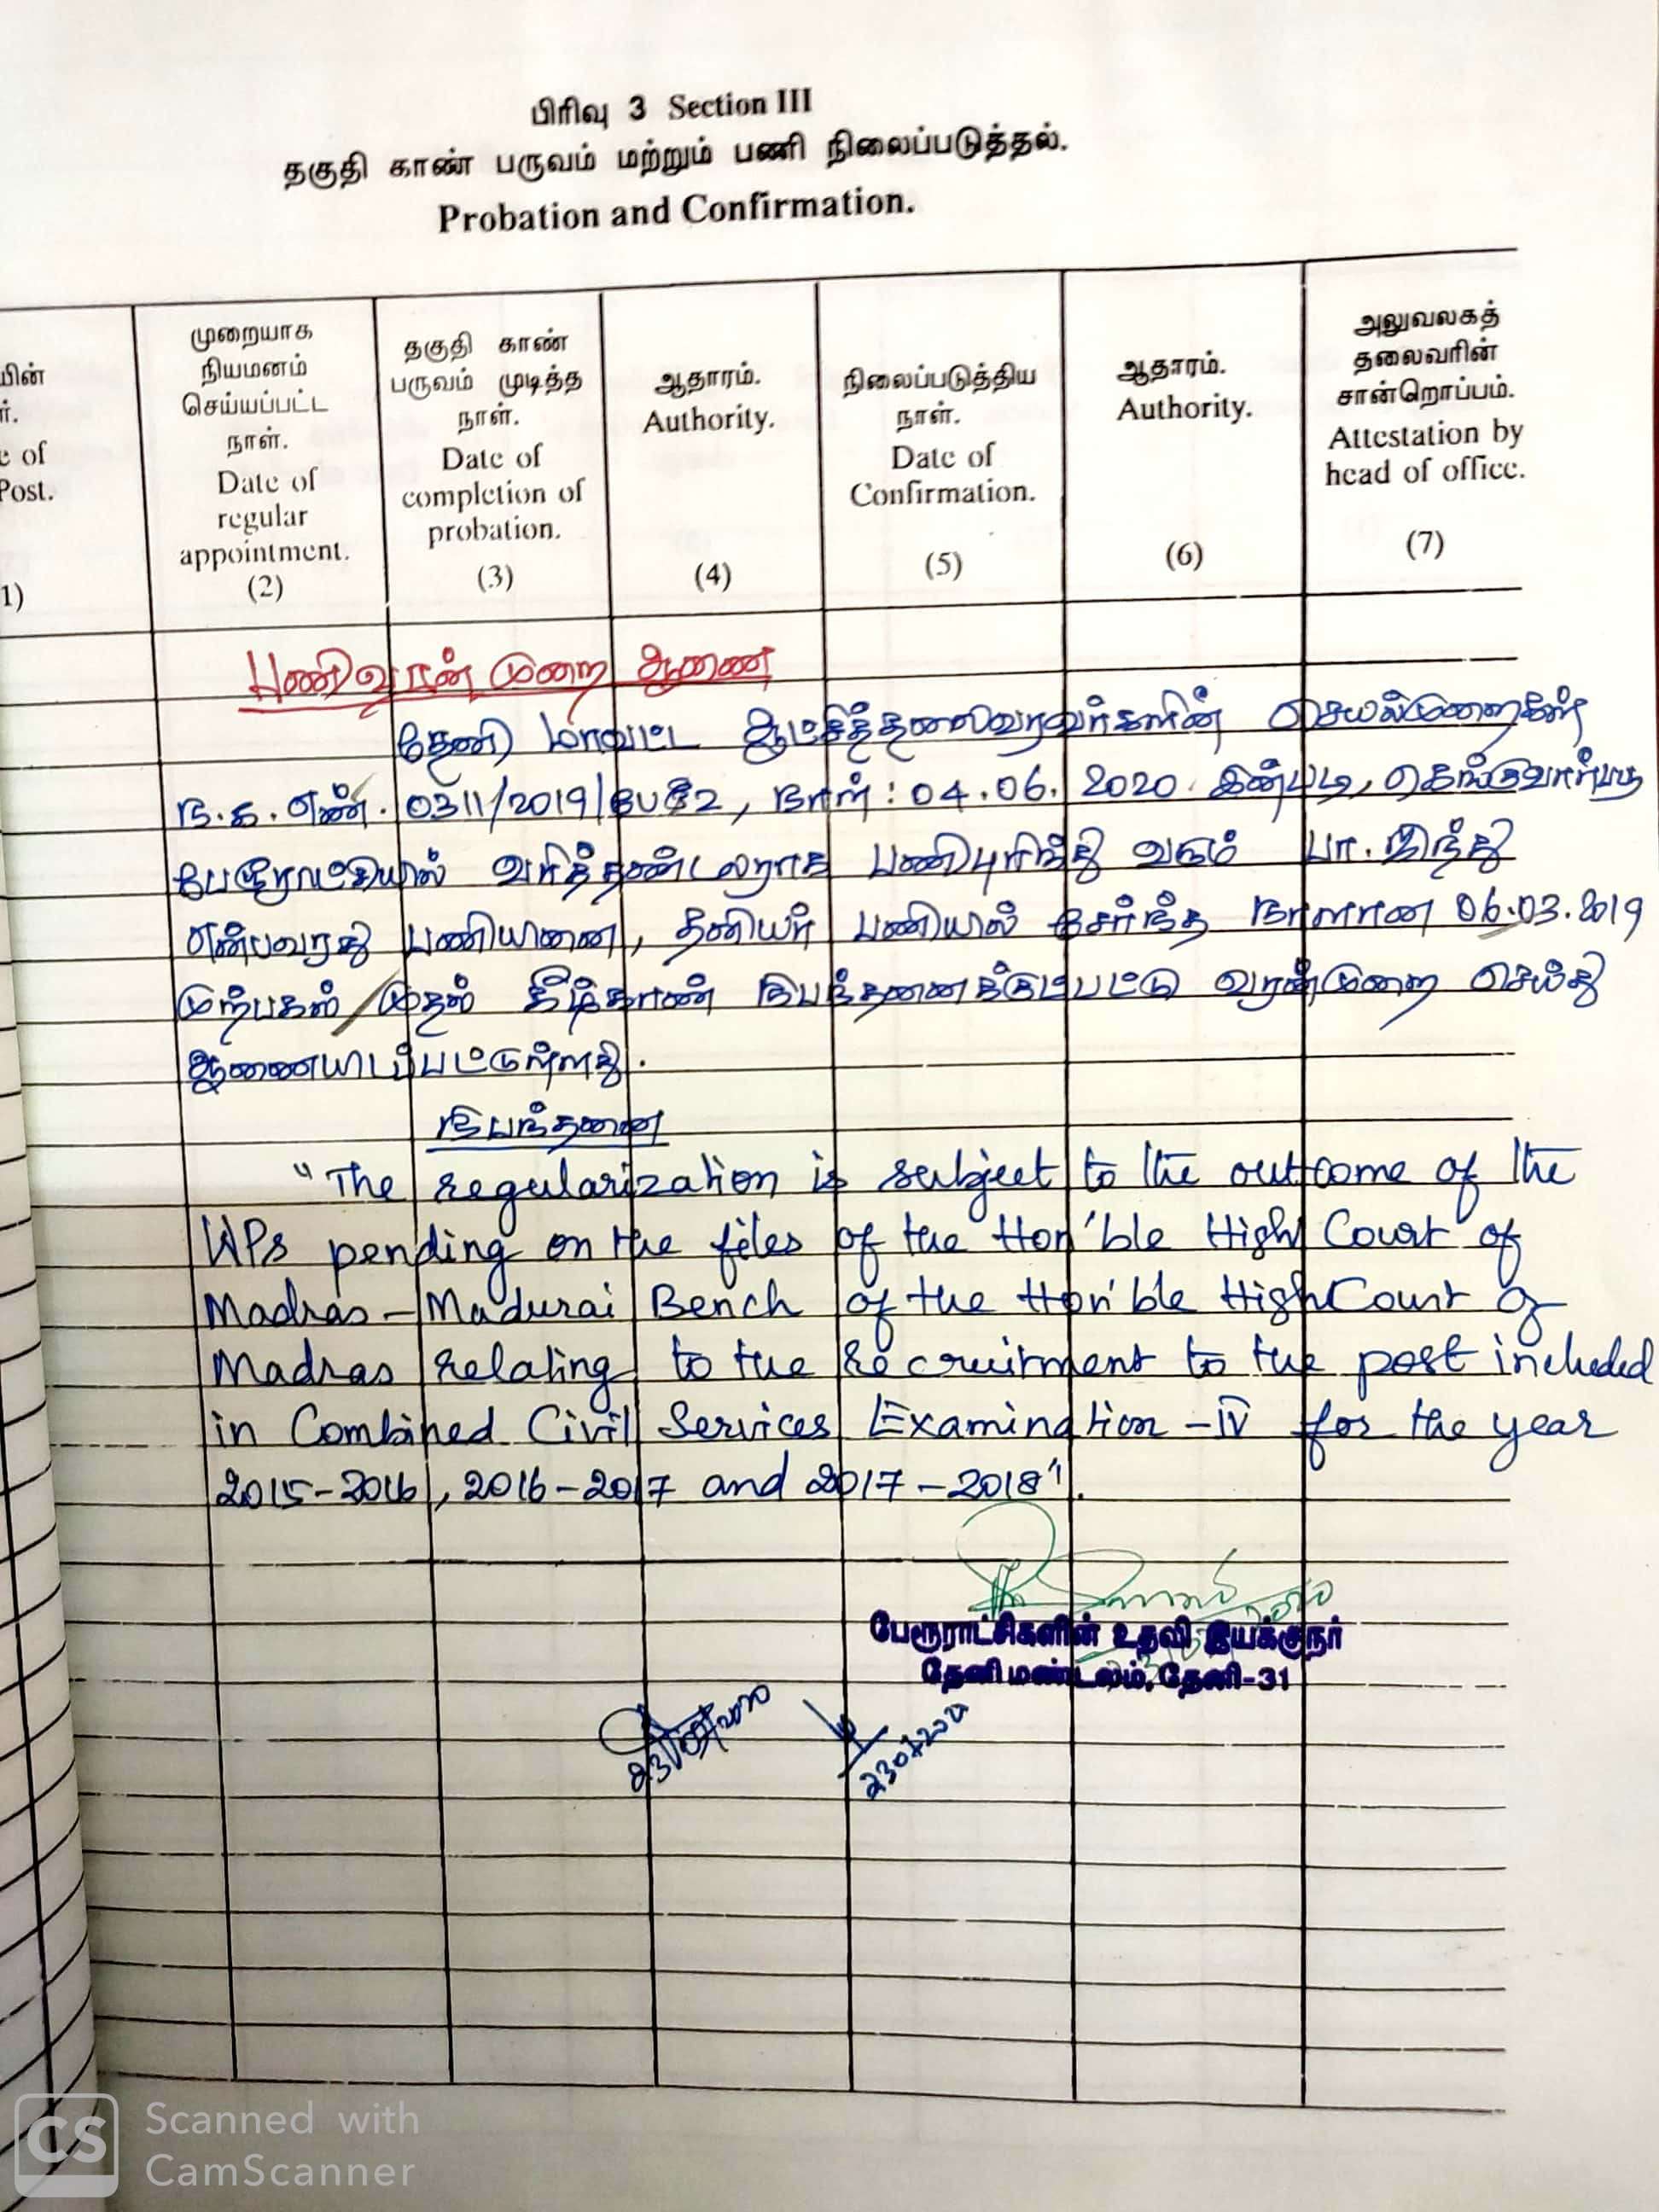 பிரிவு 3 Section III
தகுதி காண் பருவம் மற்றும் பணி நிலைப்படுத்தல்.
Probation and Confirmation.
யின்
ர்.
e of
Post.
1)
முறையாக
நியமனம்
செய்யப்பட்ட
நாள்.
Date of
regular
appointment.
(2)
தகுதி காண்
பருவம் முடித்த
நாள்.
Date of
completion of
probation.
(3)
ஆதாரம்.
Authority.
(4)
நிலைப்படுத்திய
நாள்.
Date of
Confirmation.
(5)
ஆதாரம்.
Authority.
(6)
அலுவலகத்
தலைவரின்
சான்றொப்பம்.
Attestation by
head of office.
(7)
பணிவரன் முறை ஆணை
தேனி மாவட்ட ஆட்சித்தலைவரவர்களின் செயல்முறைகள்
ந.க.எண். 0311/2019/பேரூ2, நாள்: 04.06.2020. இன்படி, தெங்குவார்பட்டி
பேரூராட்சியில் வரித்தண்டலராக பணிபுரிந்து வரும் பா.
என்பவரது பணியினை, தனியர் பணியில் சேர்ந்த நாளான 06.03.2019
முற்பகல் முதல் கீழ்காண் நிபந்தனைக்குட்பட்டு வரன்முறை செய்து
ஆணையிடப்பட்டுள்ளது.
நிபந்தனை
"The regularization is subject to the outcome of the
WPs pending on the files of the Hon'ble High Court of
Madras - Madurai Bench of the Hon'ble High Court of
Madras relating to the Recruitment to the post included
in Combined Civil Services Examination -IV for the year
2015-2016, 2016-2017 and 2017-2018".
பேரூராட்சிகளின் உதவி இயக்குநர்
தேனி மண்டலம், தேனி-31
CS Scanned with
CamScanner